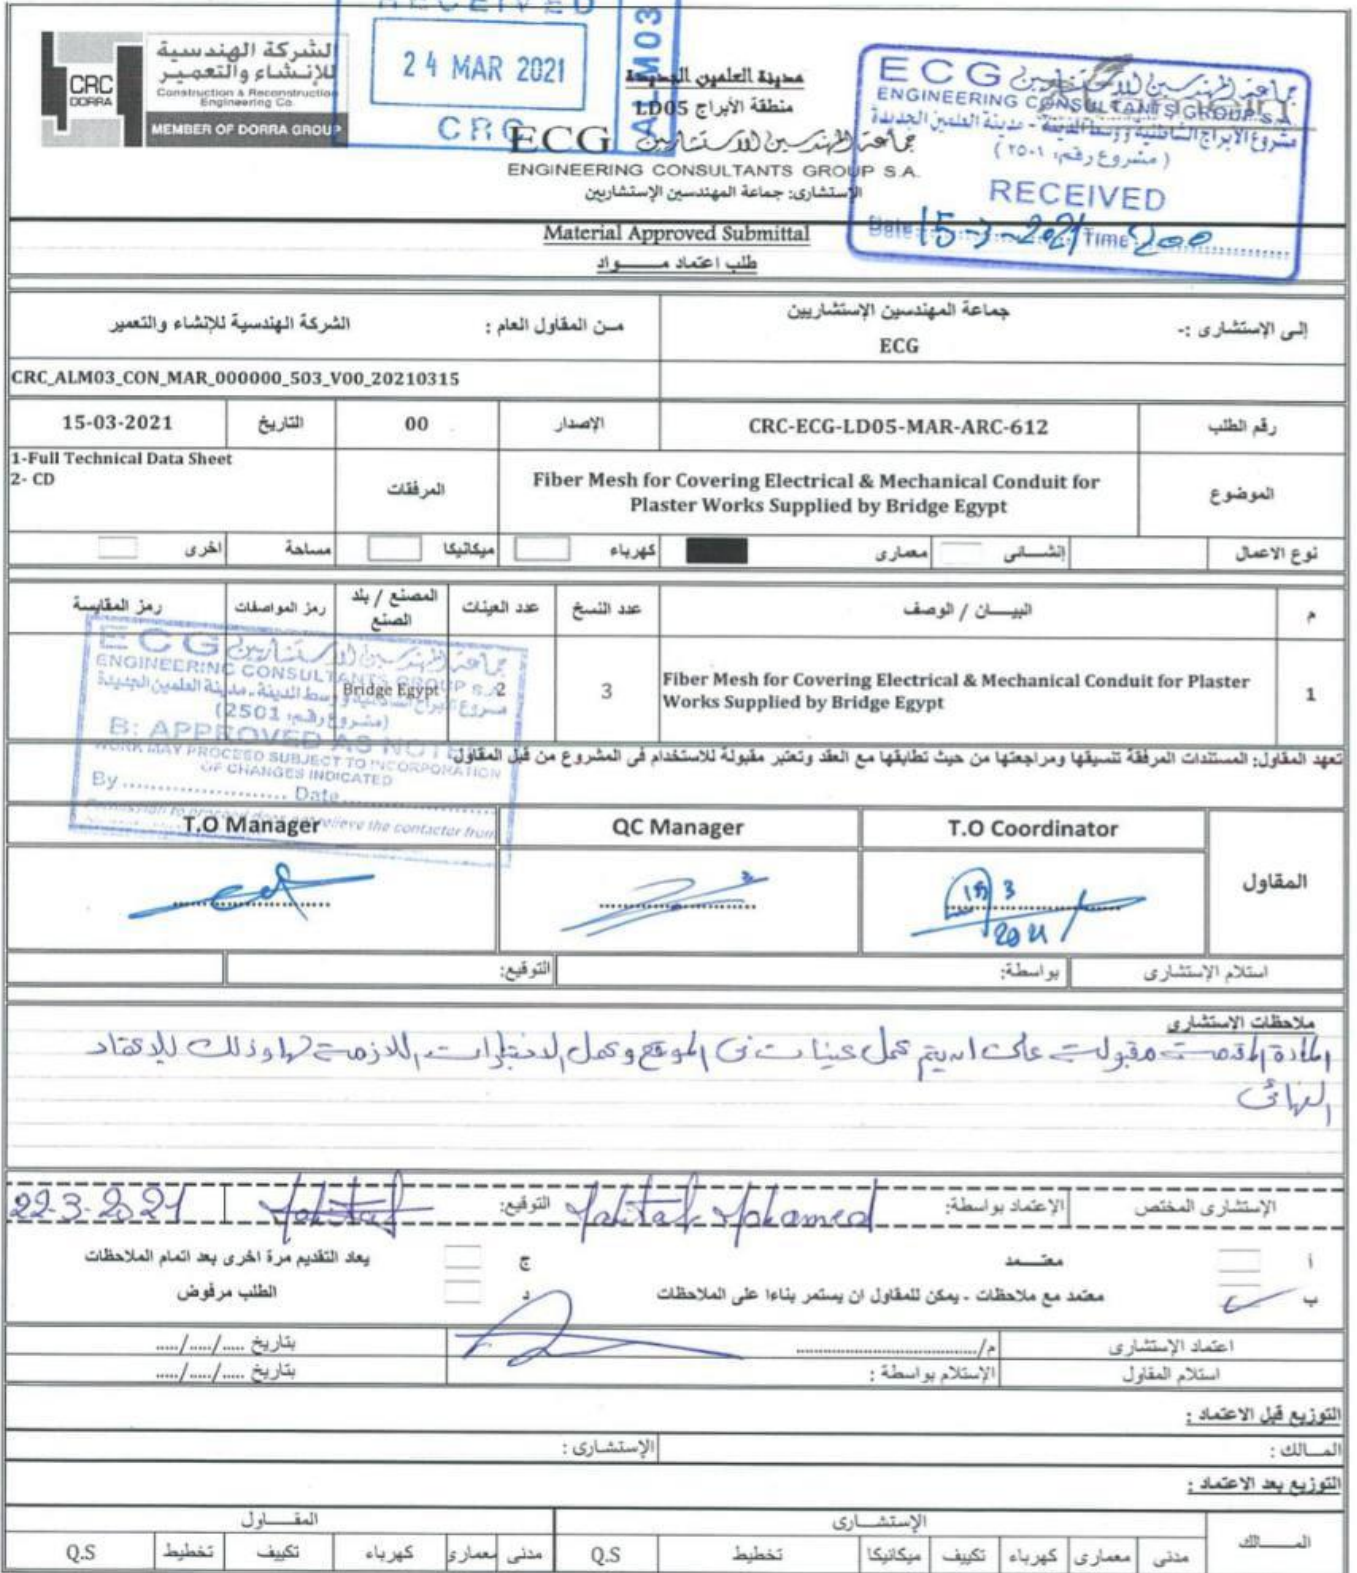 RECEIVED
24 MAR 2021
CRC
ALM03
CRC
DORRA
الشركة الهندسية
للإنشاء والتعمير
Construction & Reconstruction
Engineering Co.
MEMBER OF DORRA GROUP
مدينة العلمين الجديدة
منطقة الأبراج LD05
ECG جماعة المهندسين الاستشاريين
ENGINEERING CONSULTANTS GROUP S.A.
الإستشارى: جماعة المهندسين الإستشاريين
ECG جماعة المهندسين الاستشاريين
ENGINEERING CONSULTANTS GROUP S.A
مشروع الأبراج الشاطئية ووسط المدينة - مدينة العلمين الجديدة
(مشروع رقم: ٢٥٠١)
RECEIVED
Date 15-3-2021 Time 2:00
Material Approved Submittal
طلب اعتماد مـــــواد
إلى الإستشارى :-
جماعة المهندسين الإستشاريين
ECG
مـن المقاول العام :
الشركة الهندسية للإنشاء والتعمير
CRC_ALM03_CON_MAR_000000_503_V00_20210315
رقم الطلب CRC-ECG-LD05-MAR-ARC-612 الإصدار 00 التاريخ 15-03-2021
الموضوع
Fiber Mesh for Covering Electrical & Mechanical Conduit for
Plaster Works Supplied by Bridge Egypt
المرفقات
1-Full Technical Data Sheet
2- CD
نوع الاعمال إنشـــانى معمارى كهرباء ميكانيكا مساحة اخرى
م البيـــــان / الوصف عدد النسخ عدد العينات المصنع / بلد الصنع رمز المواصفات رمز المقايسة
1
Fiber Mesh for Covering Electrical & Mechanical Conduit for Plaster
Works Supplied by Bridge Egypt
3 2 Bridge Egypt
ECG جماعة المهندسين الاستشاريين
ENGINEERING CONSULTANTS GROUP S.A
مشروع الأبراج الشاطئية ووسط المدينة - مدينة العلمين الجديدة
(مشروع رقم: 2501)
B: APPROVED AS NOTED
WORK MAY PROCEED SUBJECT TO INCORPORATION
OF CHANGES INDICATED
By ........................ Date........................
Permission to proceed does not relieve the contactor from
تعهد المقاول: المستندات المرفقة تنسيقها ومراجعتها من حيث تطابقها مع العقد وتعتبر مقبولة للاستخدام فى المشروع من قبل المقاول
المقاول T.O Coordinator QC Manager T.O Manager
15 3
2021
استلام الإستشارى بواسطة: التوقيع:
ملاحظات الاستشارى
المادة المقدمة مقبولة على ان يتم عمل عينات فى الموقع وعمل الاختبارات اللازمة لها وذلك للاعتماد
النهائى
الإستشارى المختص الإعتماد بواسطة: Mohamed التوقيع: 22-3-2021
أ معتـــــمد ج يعاد التقديم مرة اخرى بعد اتمام الملاحظات
ب معتمد مع ملاحظات - يمكن للمقاول ان يستمر بناءا على الملاحظات د الطلب مرفوض
اعتماد الإستشارى م/........................................ بتاريخ ...../...../.....
استلام المقاول الإستلام بواسطة : بتاريخ ...../...../.....
التوزيع قبل الاعتماد :
المـــالك : الإستشارى :
التوزيع بعد الاعتماد :
المـــــالك الإستشـــارى المقـــاول
مدنى معمارى كهرباء تكييف ميكانيكا تخطيط Q.S مدنى معمارى كهرباء تكييف تخطيط Q.S